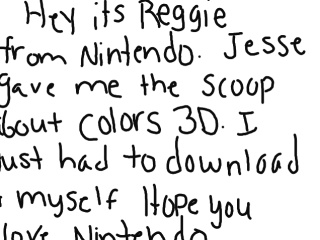 Hey its Reggie
from Nintendo. Jesse
gave me the scoop
bout Colors 3D. I
ust had to download
myself Hope you
love Nintendo